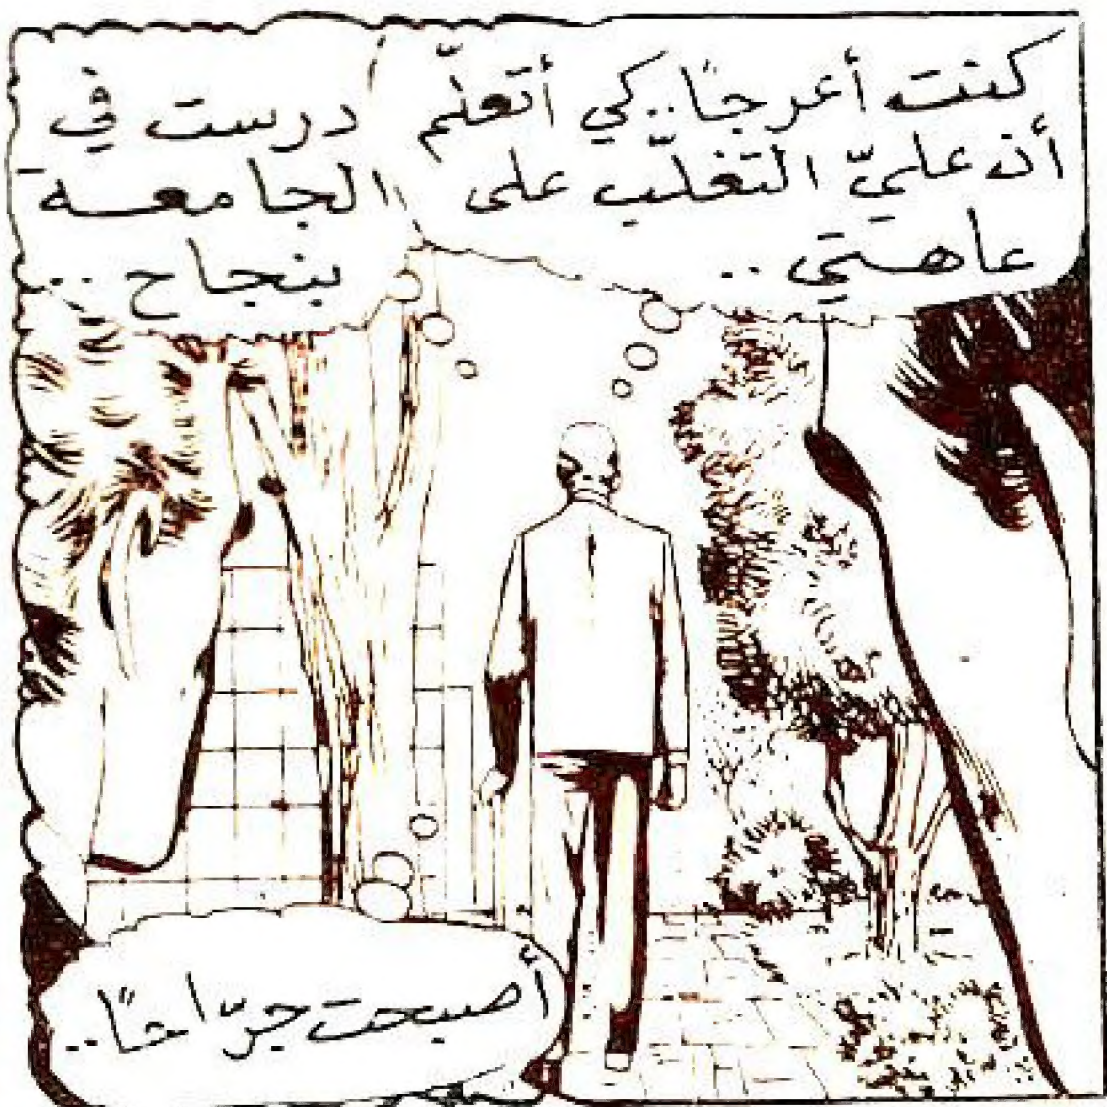 كنت أعرجًا.. كي أتعلّم
أن عليّ التغلّب على
عاهتي ..
درست في
الجامعة
بنجاح ..
أصبحت جرّاحًا..